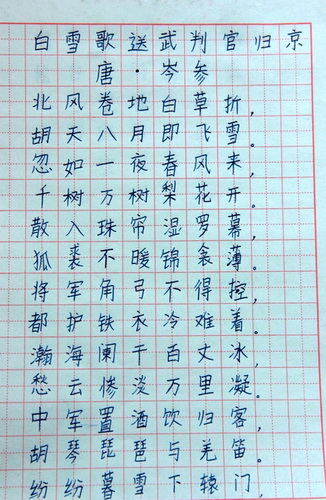 白雪歌送武判官归京
唐·岑参
北风卷地白草折，
胡天八月即飞雪。
忽如一夜春风来，
千树万树梨花开。
散入珠帘湿罗幕，
狐裘不暖锦衾薄。
将军角弓不得控，
都护铁衣冷难着。
瀚海阑干百丈冰，
愁云惨淡万里凝。
中军置酒饮归客，
胡琴琵琶与羌笛。
纷纷暮雪下辕门，